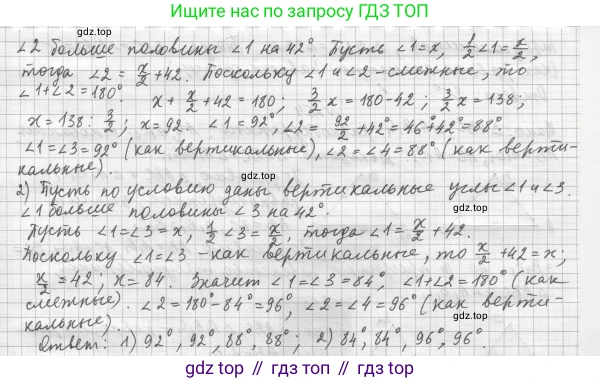 Ищите нас по запросу ГДЗ ТОП
gdz.top
∠2 больше половины ∠1 на 42°. Пусть ∠1=x, 1/2∠1=x/2,
тогда ∠2 = x/2+42. Поскольку ∠1 и ∠2 – смежные, то
∠1+∠2=180°. x+x/2+42=180; 3/2x=180-42; 3/2x=138;
x=138:3/2; x=92. ∠1=92°, ∠2=92/2+42°=46°+42°=88°.
∠1=∠3=92° (как вертикальные), ∠2=∠4=88° (как верти-
кальные).
gdz.top
2) Пусть по условию даны вертикальные углы ∠1 и ∠3.
∠1 больше половины ∠3 на 42°.
Пусть ∠1=∠3=x, 1/2∠3=x/2, тогда ∠1=x/2+42.
Поскольку ∠1=∠3 – как вертикальные, то x/2+42=x;
x/2=42, x=84. Значит ∠1=∠3=84°, ∠1+∠2=180° (как
смежные). ∠2=180°-84°=96°, ∠2=∠4=96° (как верти-
кальные).
gdz.top
Ответ: 1) 92°, 92°, 88°, 88°; 2) 84°, 84°, 96°, 96°.
gdz top // гдз топ // gdz.top